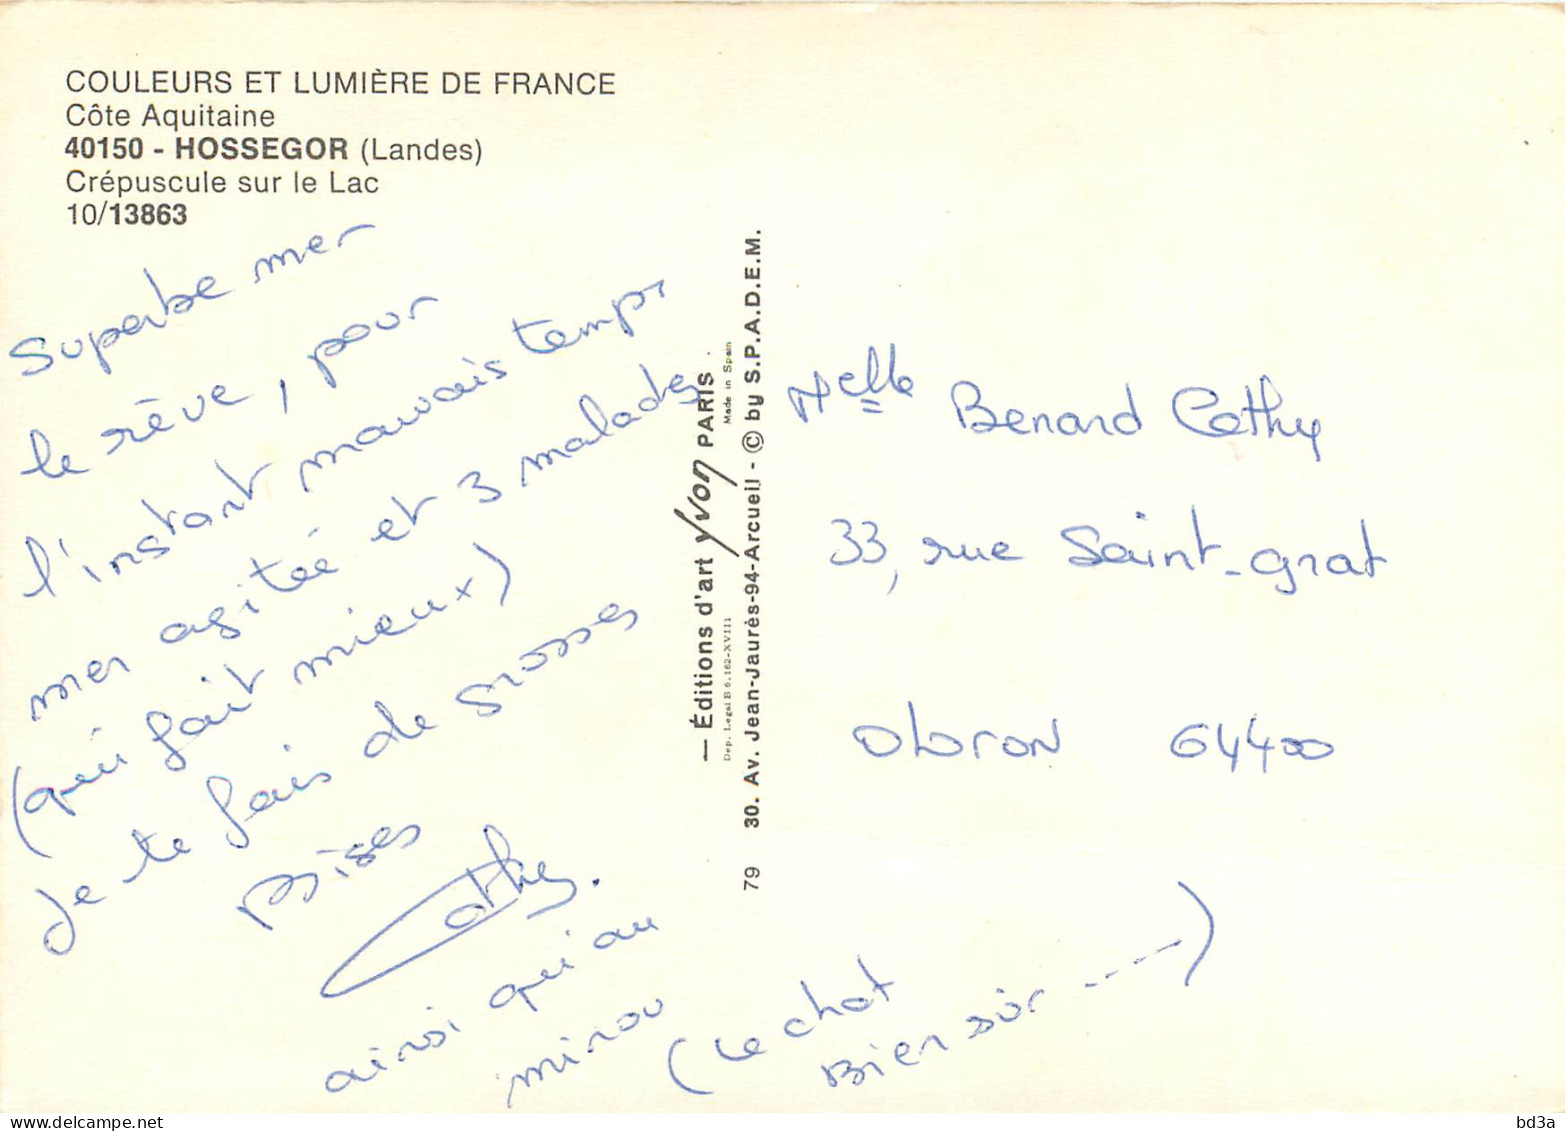 COULEURS ET LUMIÈRE DE FRANCE
Côte Aquitaine
40150 - HOSSEGOR (Landes)
Crépuscule sur le Lac
10/13863
Superbe mer
le rêve, pour
l'instant mauvais temps
mer agitée et 3 malades
(qui fait mieux)
Je te fais de grosses
Bises
Cathy.
ainsi qu'au
minou
(le chat
Bien sûr ----)
— Éditions d'art Yvon PARIS
Dep. Legal B 6.162-XVIII
Made in Spain
79 30. Av. Jean-Jaurès-94-Arcueil - © by S.P.A.D.E.M.
Melle Benard Cathy
33, rue Saint-grat
Oloron 64400
© Delcampe.net
bd3a